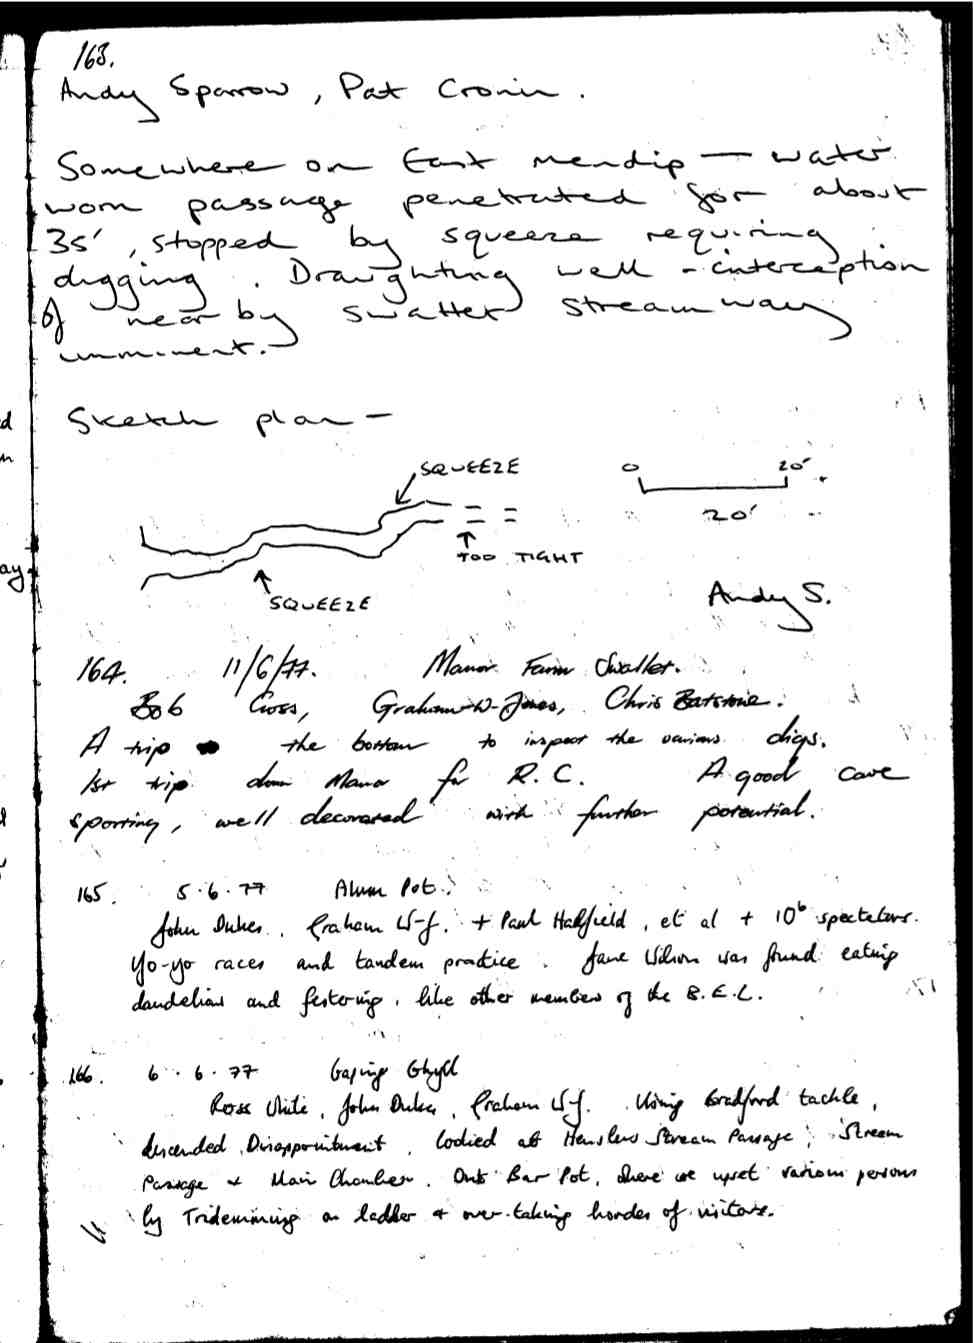 163.
Andy Sparrow, Pat Cronin.
Somewhere on East Mendip — water
worn passage penetrated for about
35', stopped by squeeze requiring
digging. Draughting well - interception
of near by swallet streamway
imminent.
Sketch plan —
SQUEEZE
0 20'
20'
TOO TIGHT
SQUEEZE
Andy S.
164. 11/6/77. Manor Farm Swallet.
Bob Cross, Graham W-Jones, Chris Batstone.
A trip the bottom to inspect the various digs.
1st trip down Manor for R.C. A good cave
sporting, well decorated with further potential.
165. 5.6.77 Alum Pot.
John Dukes, Graham W-J. + Paul Hadfield, et al + 10⁶ spectators.
Yo-yo races and tandem practice. Jane Wilson was found eating
dandelions and festering, like other members of the B.E.C.
166. 6.6.77 Gaping Ghyll
Ross White, John Dukes, Graham W-J. Using Bradford tackle,
descended Disappointment, looked at Henslers Stream Passage, Stream
Passage + Main Chamber. Out Bar Pot, where we upset various persons
by on ladder + over-taking hordes of visitors.